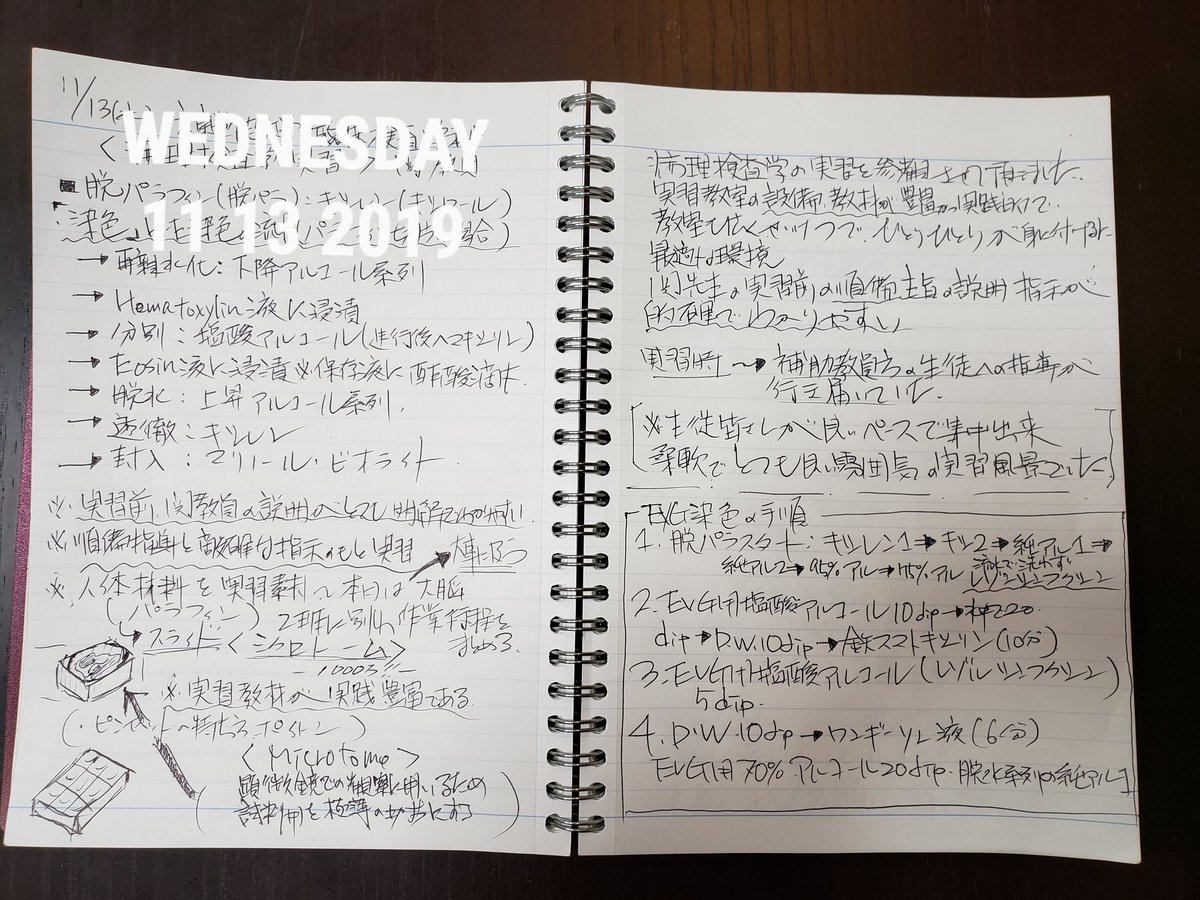 WEDNESDAY
11 13 2019
11/13
■ 脱パラフィン(脱パラ):キシレン(キシロール)
→ 再親水化:下降アルコール系列
→ Hematoxylin液に浸漬
→ 分別:塩酸アルコール(進行後ヘマトキシリン)
→ Eosin液に浸漬 ※保存液に酢酸滴下
→ 脱水:上昇アルコール系列.
→ 透徹:キシレン
→ 封入:マリノール・ビオライト
※ 実習前、関教員の説明がとても明解でわかりやすい.
※ 順備指導と高確な指示のもと実習
※ 人体材料を実習素材〜本日は大脳
(パラフィン) 2班に別れ作業行程を
まとめる.
→スライド <ミクロトーム>
※ 実習教材が実践豊富である
(・ピンセットの持ち方ポイント)
< Microtome >
顕微鏡での観察に用いるため
試料(用)を極薄の切片にする
病理検査学の実習を参観させて頂きました.
実習教室の設備、教材が豊富かつ実践的で.
教室も広く ひとりひとりが身に付けるに
最適な環境
関先生の実習前の順備主旨の説明 指示が
的確でわかりやすい
実習時 〜→ 補助教員方の生徒への指導が
行き届いていた.
※生徒皆さんが良いペースで集中出来
柔軟でとても良い雰囲気の実習風景でした
EVG染色の手順
1. 脱パラスタート:キシレン1→キシ2→純アル1→
純アル2→95%アル→75%アル 流水で洗わず
レゾルシンフクシン
2. EVG用塩酸アルコール10dip→ 220
dip→D.W.10dip→鉄ヘマトキシリン(10分)
3. EVG用塩酸アルコール(レゾルシンフクシン)
5dip.
4. D.W.10dip→ワンギーソン液(6分)
EVG用70%アルコール20dip. 脱水系列の純アル1